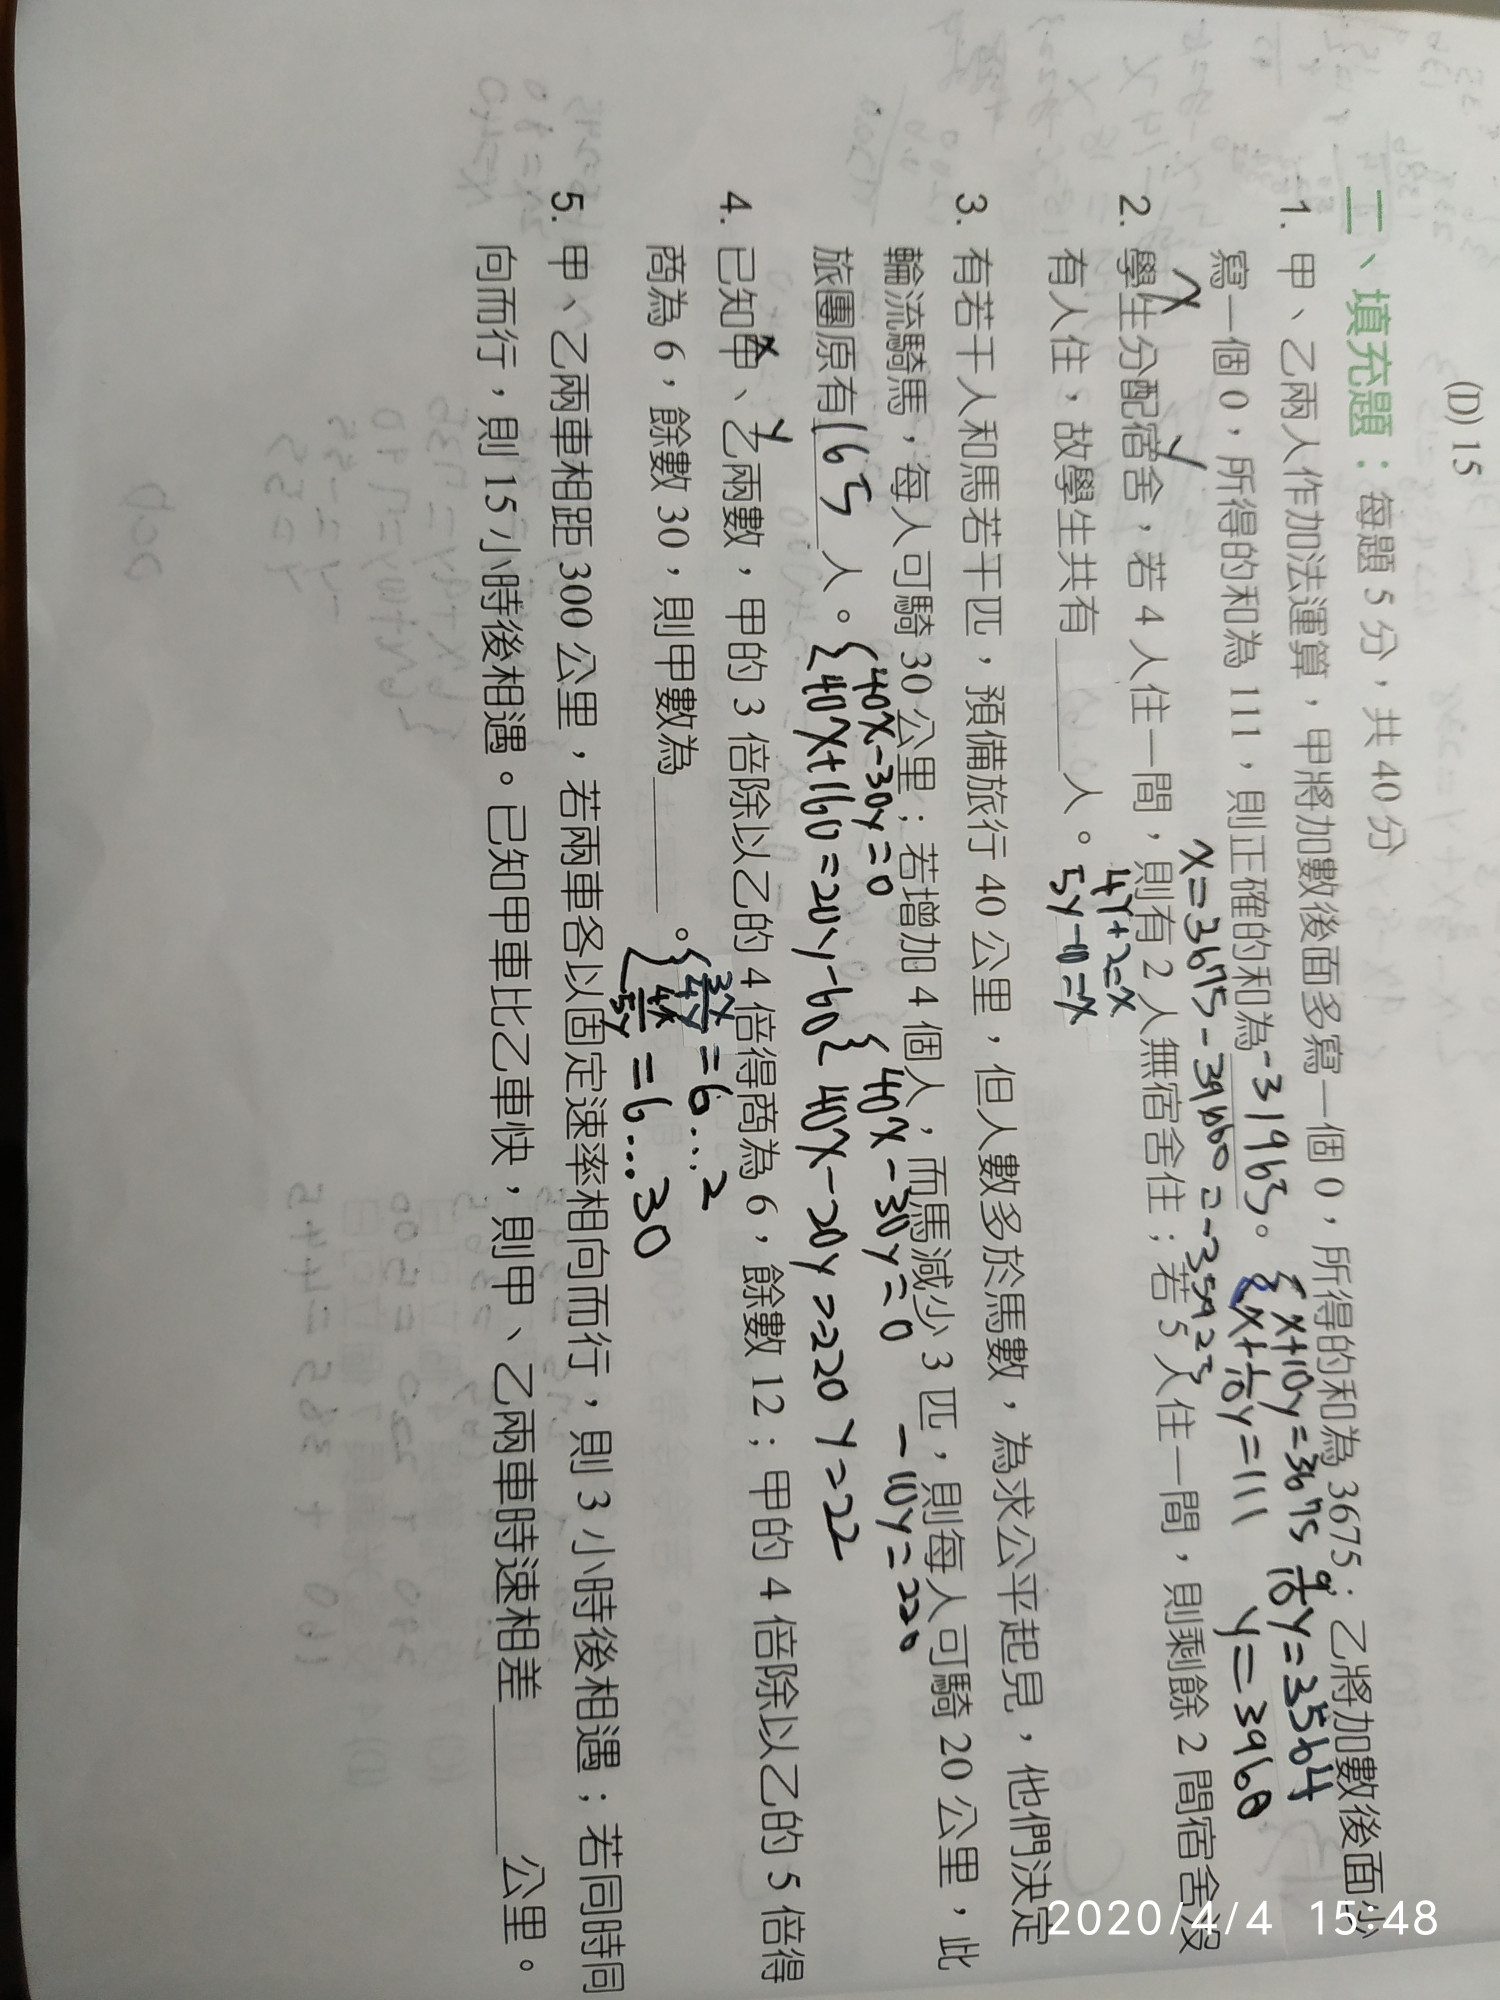 (D) 15
二、填充題：每題 5 分，共 40 分
1. 甲、乙兩人作加法運算，甲將加數後面多寫一個 0，所得的和為 3675；乙將加數後面少
寫一個 0，所得的和為 111，則正確的和為 -31965。
{x+10y=3675
x+1/10y=111
9/10y=3564
y=3960
x=3675-39600=-35925
2. 學生分配宿舍，若 4 人住一間，則有 2 人無宿舍住；若 5 人住一間，則剩餘 2 間宿舍沒
x
y
有人住，故學生共有______人。
4y+2=x
5y-10=x
3. 有若干人和馬若干匹，預備旅行 40 公里，但人數多於馬數，為求公平起見，他們決定
輪流騎馬，每人可騎 30 公里；若增加 4 個人，而馬減少 3 匹，則每人可騎 20 公里，此
旅團原有 165 人。
{40x-30y=0
40x+160=20y-60
{40x-30y=0
40x-20y=-220
-10y=220
y=22
4. 已知甲、乙兩數，甲的 3 倍除以乙的 4 倍得商為 6，餘數 12；甲的 4 倍除以乙的 5 倍得
x
y
商為 6，餘數 30，則甲數為______。
{3x/4y=6...2
4x/5y=6...30
5. 甲、乙兩車相距 300 公里，若兩車各以固定速率相向而行，則 3 小時後相遇；若同時同
向而行，則 15 小時後相遇。已知甲車比乙車快，則甲、乙兩車時速相差______公里。
2020/4/4 15:48